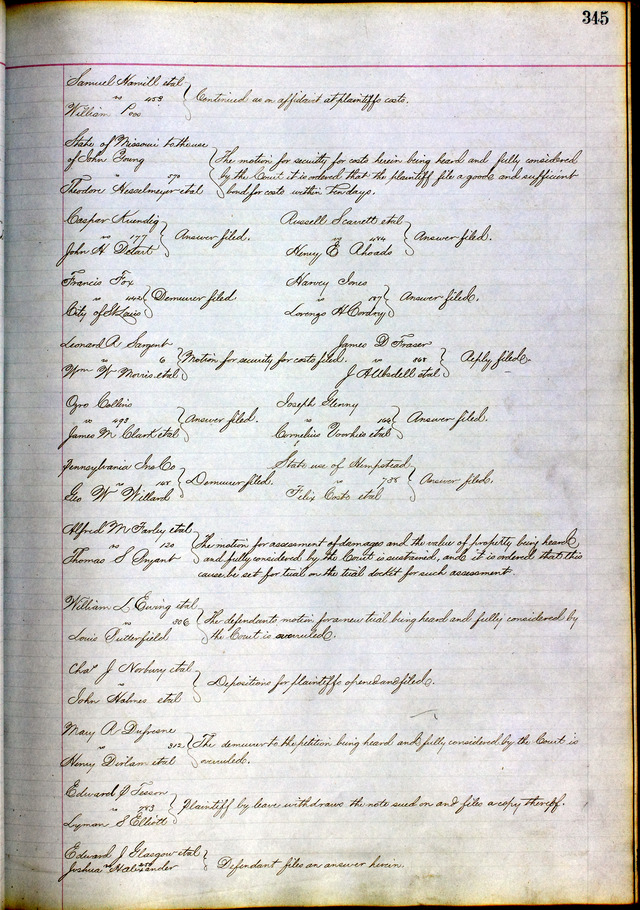 345
Samuel Hamill etal
vs 453 Continued as on affidavit at plaintiffs costs.
William Poo
State of Missouri to the use
of John Young The motion for security for costs herein being heard and fully considered
vs by the Court it is ordered that the plaintiff file a good and sufficient
Theodore Hesselmeyer etal bond for costs within ten days.
Caspar Kuendig
vs 177 Answer filed.
John H
Russell Scarrett etal
vs 484 Answer filed.
Henry E Rhoads
Francis Fox
vs Demurrer filed
City of St Louis
Harvey Jones
vs 197 Answer filed.
Lorenzo H Cordry
Leonard A Sargent
vs 6 Motion for security for costs filed.
Wm W Morris etal
James D Fraser
vs Reply filed.
J etal
Collins
vs 492 Answer filed.
James M Clark etal
Joseph Glenny
vs Answer filed.
Cornelius Voorhis etal
Pennsylvania Ins Co
vs Demurrer filed.
Geo W Willard
State use of Hempstead
vs Answer filed.
Felix Coste etal
Alfred M Farley etal The motion for assessment of damages and the value of property being heard
vs and fully considered by the Court is sustained, and it is ordered that this
Thomas S Bryant cause be set for trial on the trial docket for such assessment.
William L Ewing etal
vs 306 The defendants motion for a new trial being heard and fully considered by
Louis Dutterfield the Court is overruled.
Chas J Norbury etal
Depositions for plaintiffs opened and filed.
John Holmes etal
Mary A Dufresne
vs 312 The demurrer to the petition being heard and fully considered by the Court is
Henry Dirlam etal overruled.
Edward P Tesson
vs 753 Plaintiff by leave withdraws the note sued on and files a copy thereof.
Lyman S Elliott
Edward J Glasgow etal
vs Defendant files an answer herein.
Joshua H Alexander